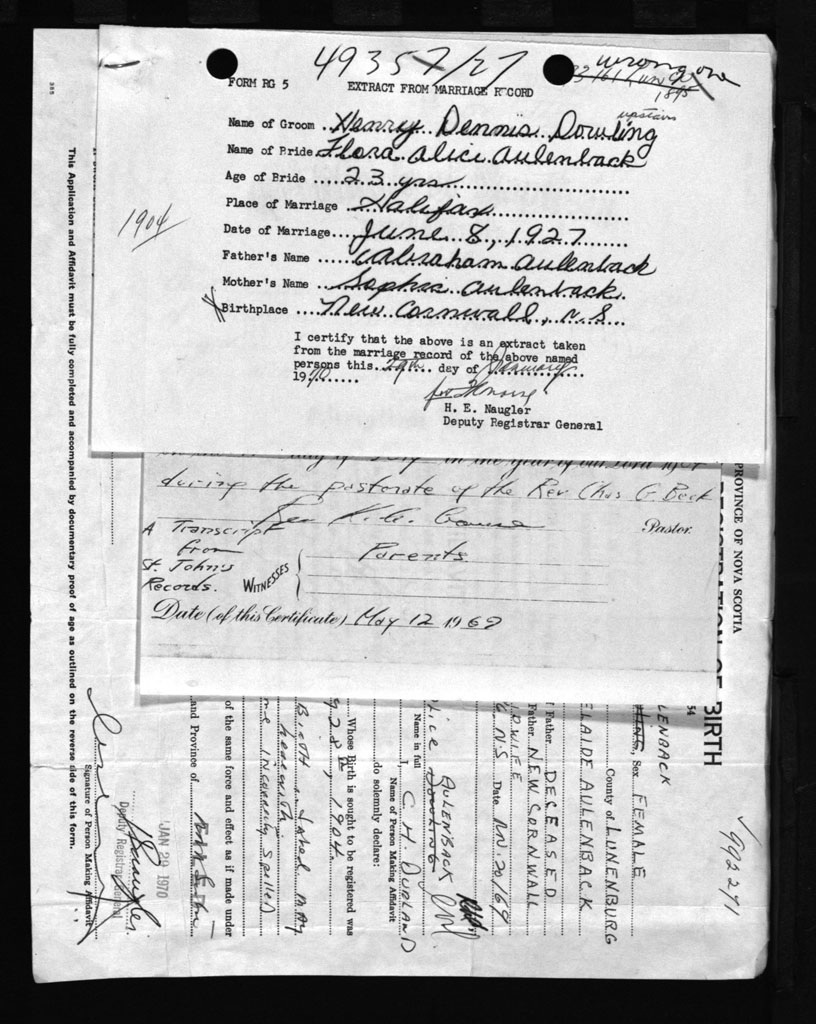 49357/27
wrong one
1895
FORM RG 5
EXTRACT FROM MARRIAGE RECORD
upstairs
Name of Groom ..Henry Dennis Dowling
Name of Bride Flora Alice Aulenback
Age of Bride ....23 yrs
Place of Marriage ..Halifax
1904
Date of Marriage....June 8, 1927
Father's Name ....Abraham Aulenback
Mother's Name ....Sophia Aulenback
Birthplace ....New Cornwall, N.S
I certify that the above is an extract taken
from the marriage record of the above named
persons this..29th.. day of January
1970
for
H. E. Naugler
Deputy Registrar General
day of in the year of our Lord
during the pastorate of the Rev Chas G. Beck
Rev Pastor.
A Transcript
from
St. John's
Records.
WITNESSES
Parents
Date (of this Certificate) May 12 1969
This Application and Affidavit must be fully completed and accompanied by documentary proof of age as outlined on the reverse side of this form.
PROVINCE OF NOVA SCOTIA
REGISTRATION OF BIRTH
54
992291
LENBACK
Sex FEMALE
County of LUNENBURG
ELAIDE AULENBACK
Father DECEASED
Father NEW CORNWALL
N.S Date
AULENBACK
LICE DOWLING
Name in full
I, C. H. DURLAND
Name of Person Making Affidavit
do solemnly declare:
Whose Birth is sought to be registered was
28th, 1904.
BIRTH MAY
herewith.
me INCORRECTLY SPELLED
of the same force and effect as if made under
and Province of
JAN 29 1970
Deputy Registrar General
Signature of Person Making Affidavit